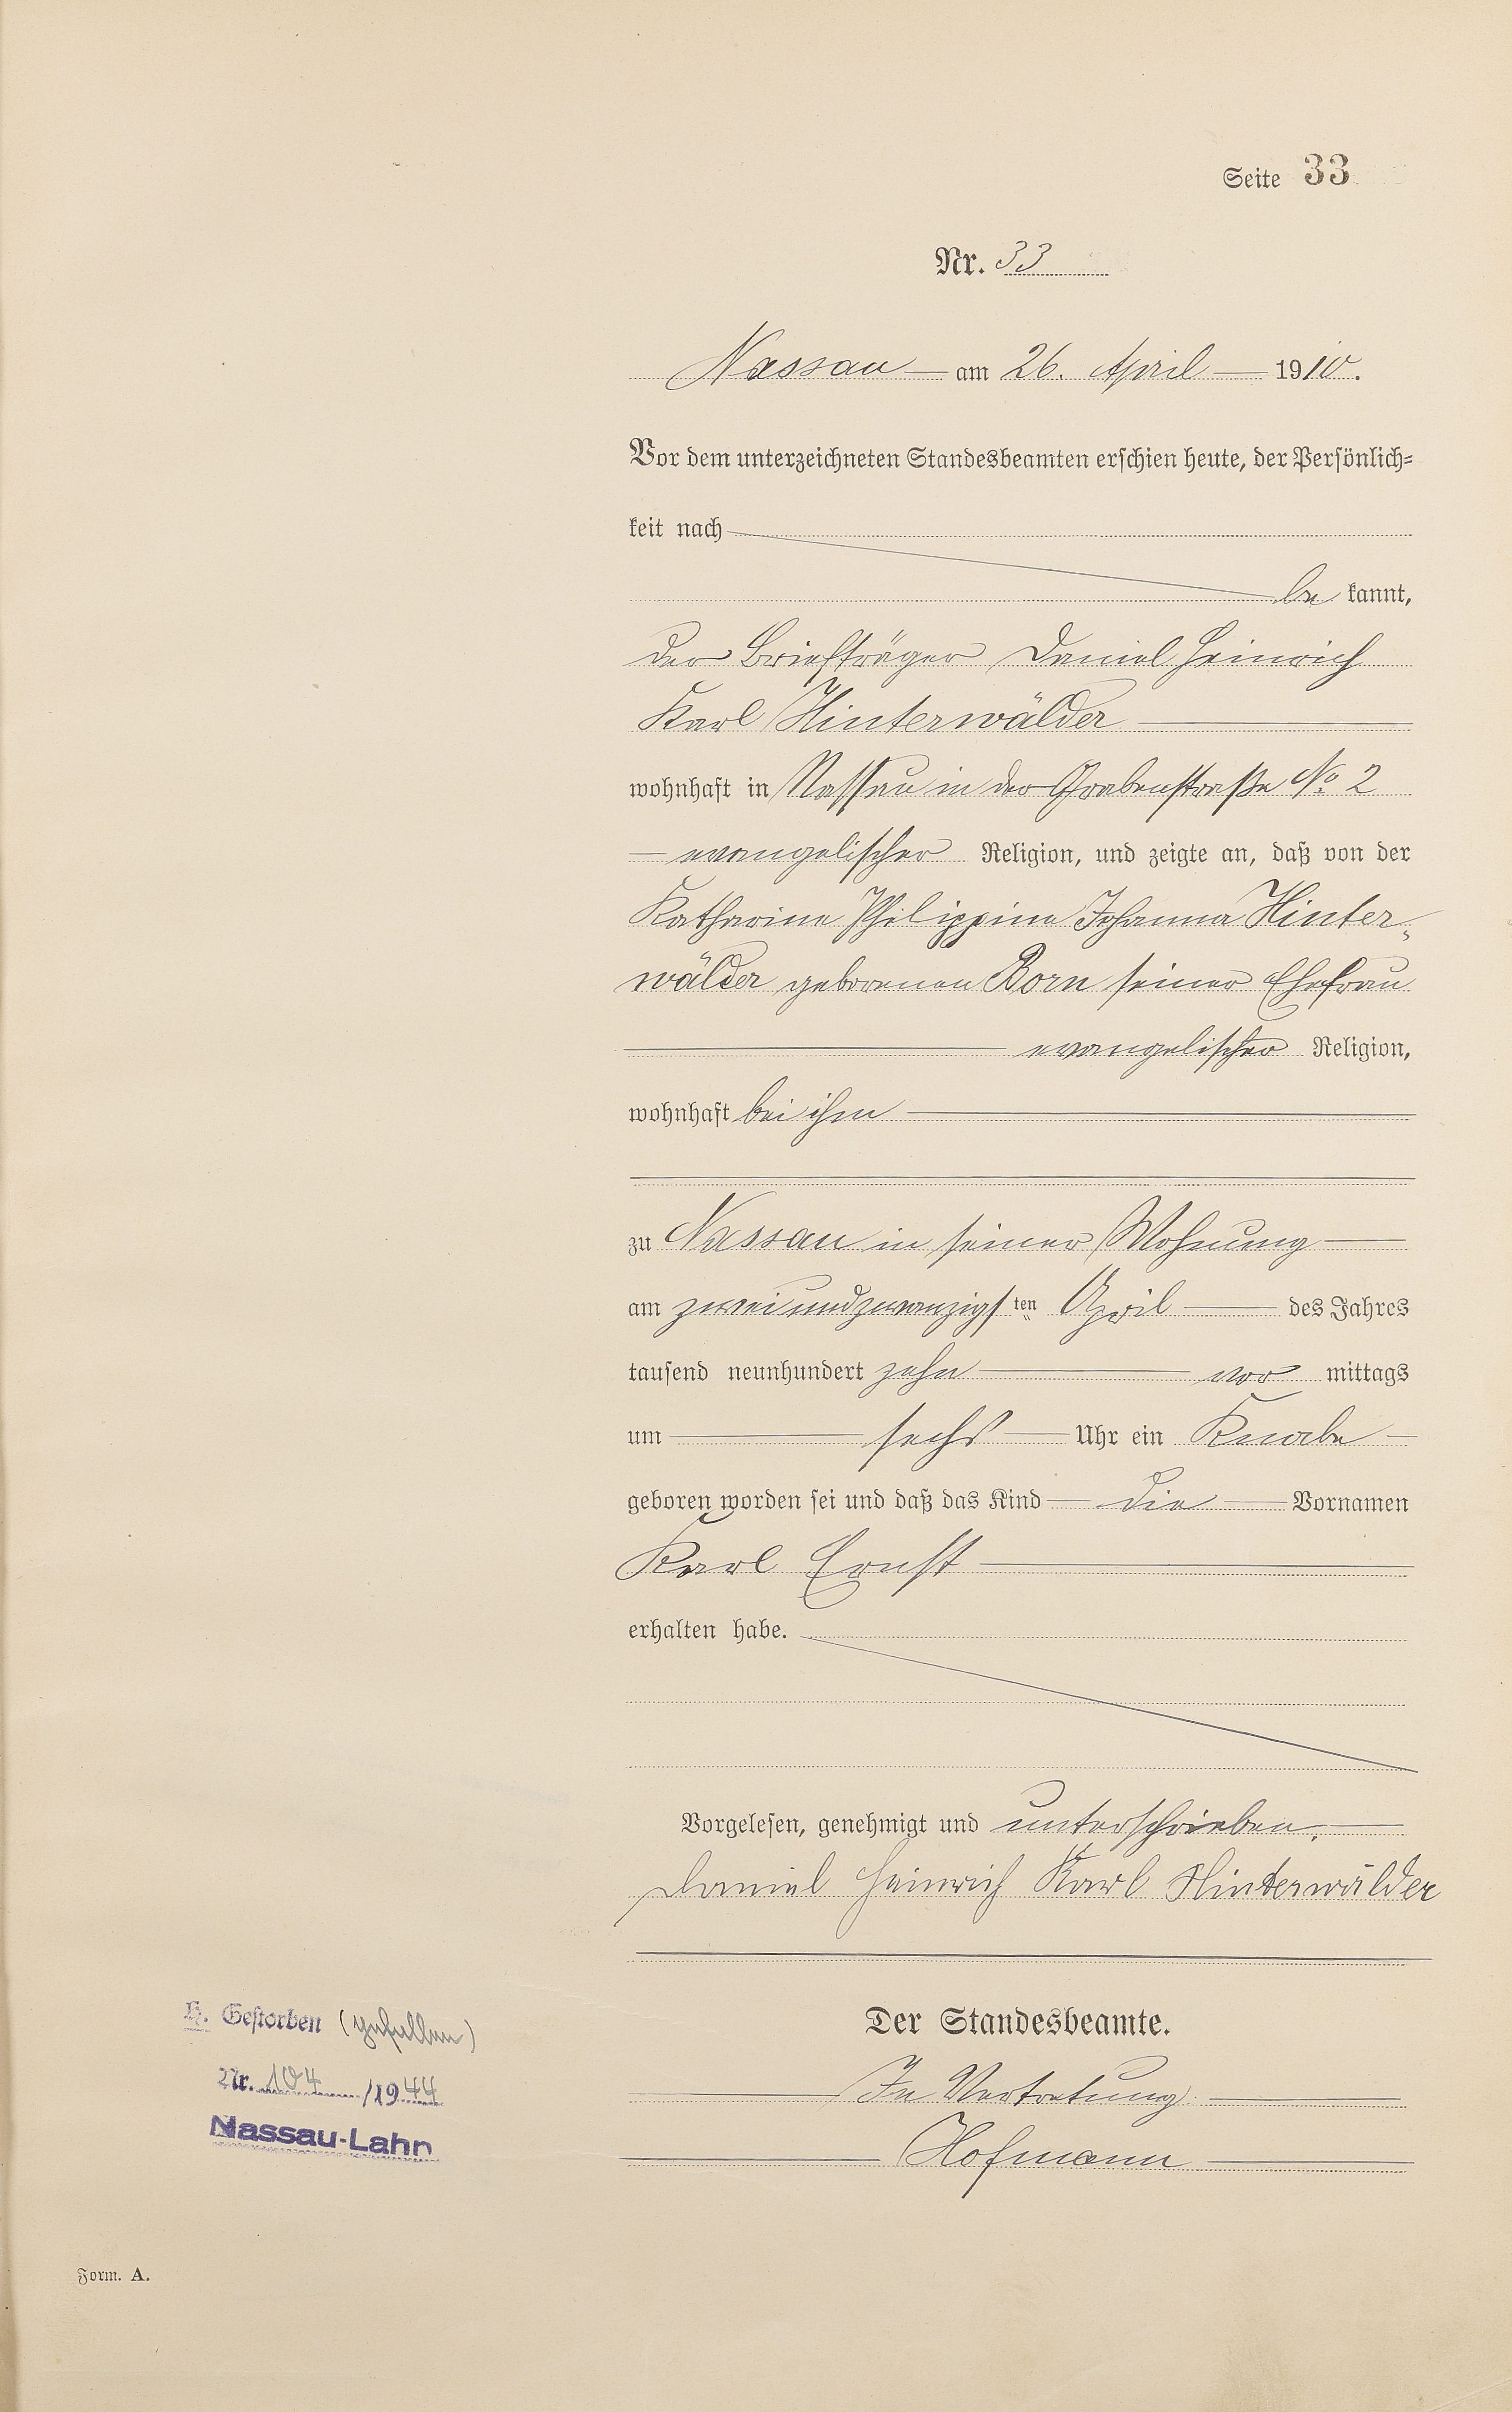 Seite 33
Nr. 33
Nassau am 26. April 1910.
Vor dem unterzeichneten Standesbeamten erschien heute, der Persönlich=
keit nach
be kannt,
der Briefträger Daniel Heinrich
Karl Hinterwälder
wohnhaft in Nassau in der Grabenstraße No 2
evangelischer Religion, und zeigte an, daß von der
Katharine Philippine Johanna Hinter-
wälder geborenen Born seiner Ehefrau
evangelischer Religion,
wohnhaft bei ihm
zu Nassau in seiner Wohnung
am zweiundzwanzigsten April des Jahres
tausend neunhundert zehn vor mittags
um sechs Uhr ein Knabe
geboren worden sei und daß das Kind die Vornamen
Karl Ernst
erhalten habe.
Vorgelesen, genehmigt und unterschrieben.
Daniel Heinrich Karl Hinterwälder
Der Standesbeamte.
In Vertretung.
Hofmann
Gestorben (gefallen)
Nr. 104 /1944
Nassau-Lahn
Form. A.